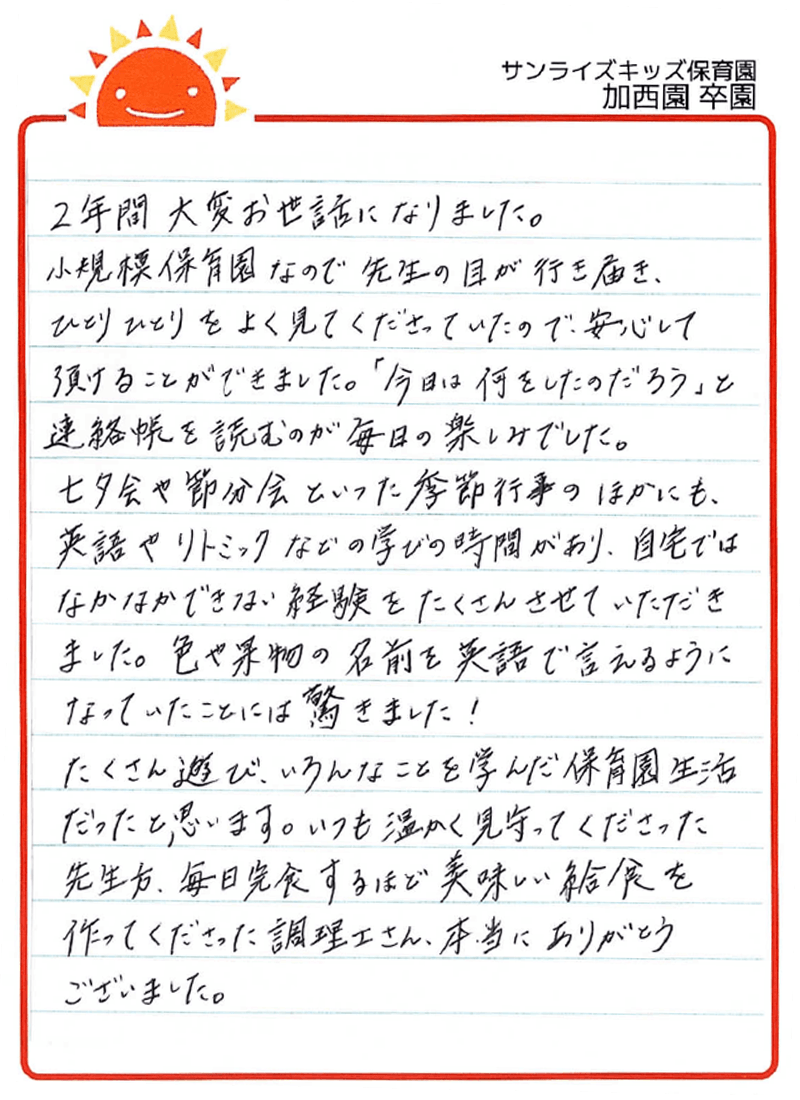 サンライズキッズ保育園
加西園 卒園
2年間 大変お世話になりました。
小規模保育園なので先生の目が行き届き、
ひとりひとりをよく見てくださっていたので、安心して
預けることができました。「今日は何をしたのだろう」と
連絡帳を読むのが毎日の楽しみでした。
七夕会や節分会といった季節行事のほかにも、
英語やリトミックなどの学びの時間があり、自宅では
なかなかできない経験をたくさんさせていただき
ました。色や果物の名前を英語で言えるように
なっていたことには驚きました!
たくさん遊び、いろんなことを学んだ保育園生活
だったと思います。いつも温かく見守ってくださった
先生方、毎日完食するほど美味しい給食を
作ってくださった調理士さん、本当にありがとう
ございました。